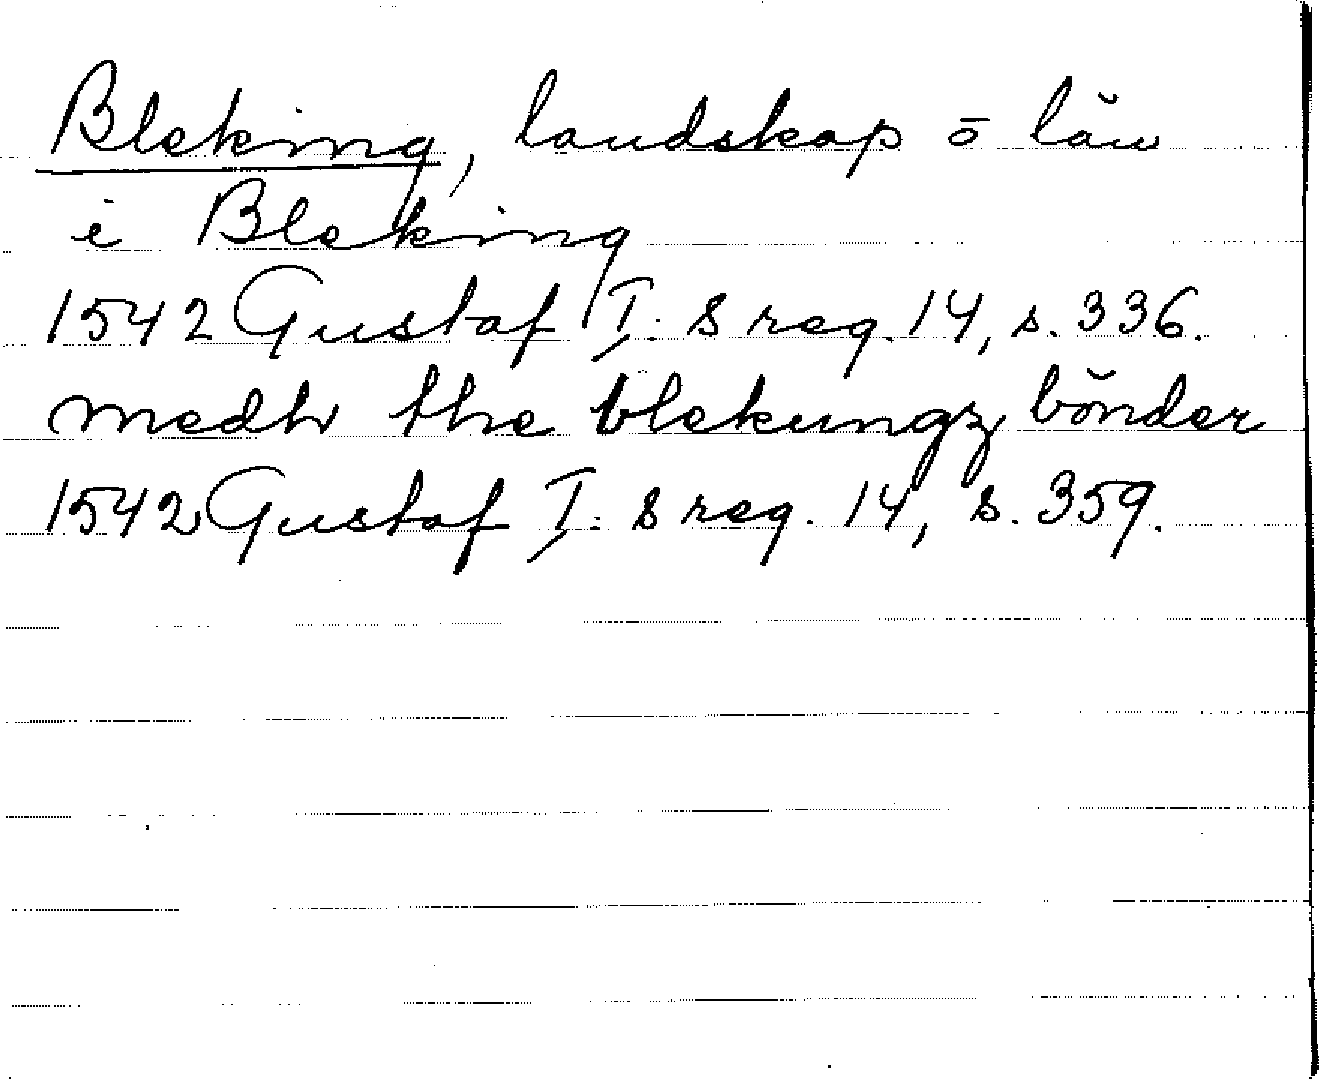 Bleking, landskap o län
i Bleking
1542 Gustaf I:s reg. 14, s. 336.
medh the blekungz bönder
1542 Gustaf I:s reg. 14, s. 359.